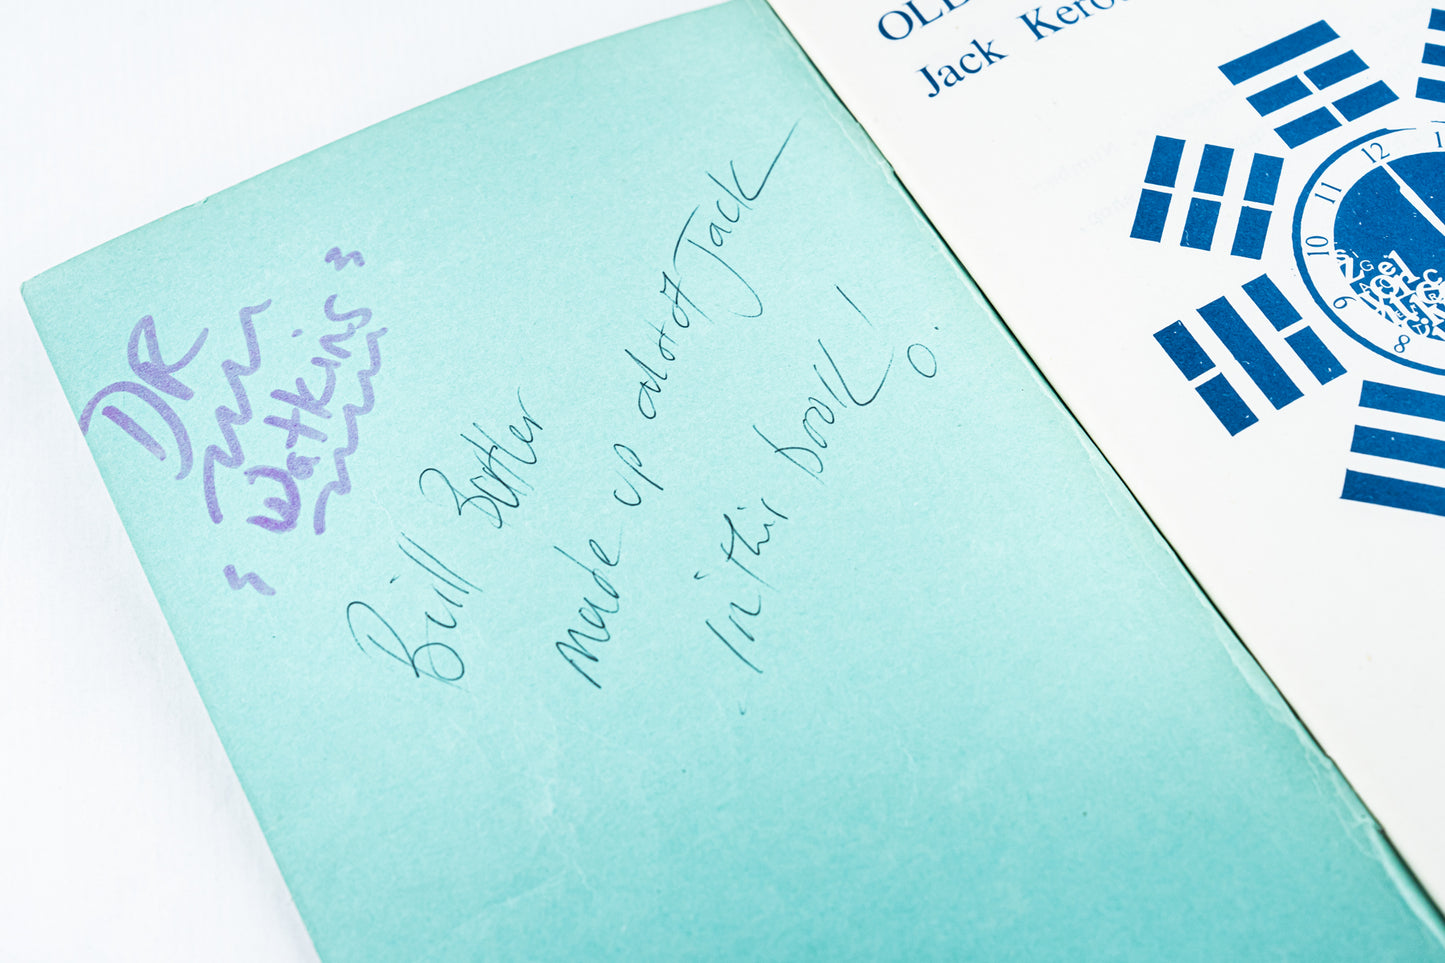 "DR
Watkins"
Bill Butler
made up alot of Jack
in this book!
OLD
Jack Kero
12
11
10
9
8